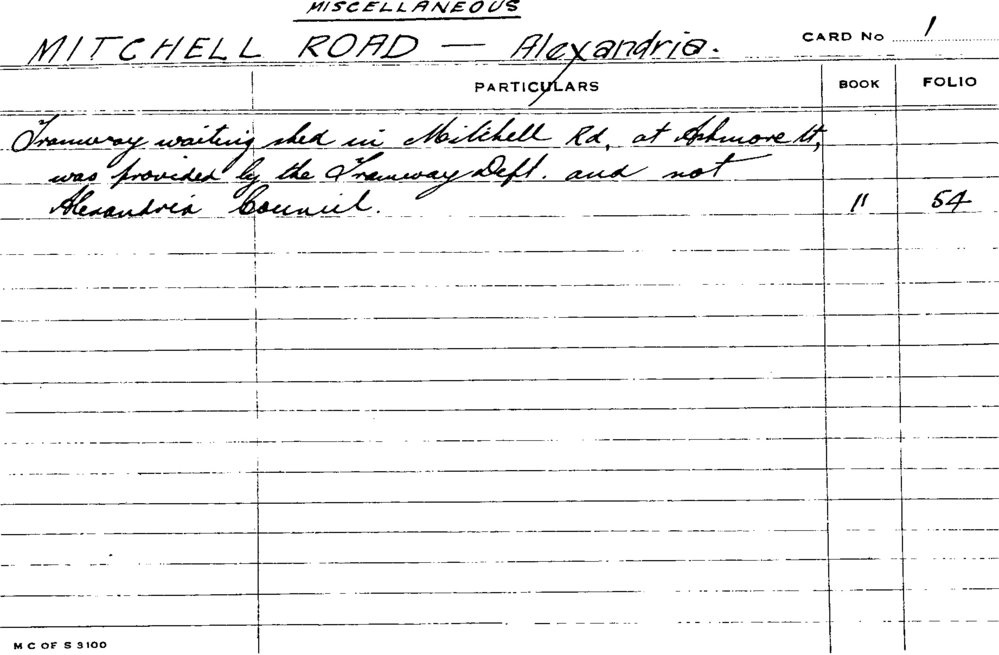 MISCELLANEOUS
MITCHELL ROAD — Alexandria.
CARD No 1
PARTICULARS BOOK FOLIO
Tramway waiting shed in Mitchell Rd, at Ashmore St,
was provided by the Tramway Dept. and not
Alexandria Council. 11 54
M C OF S 3100